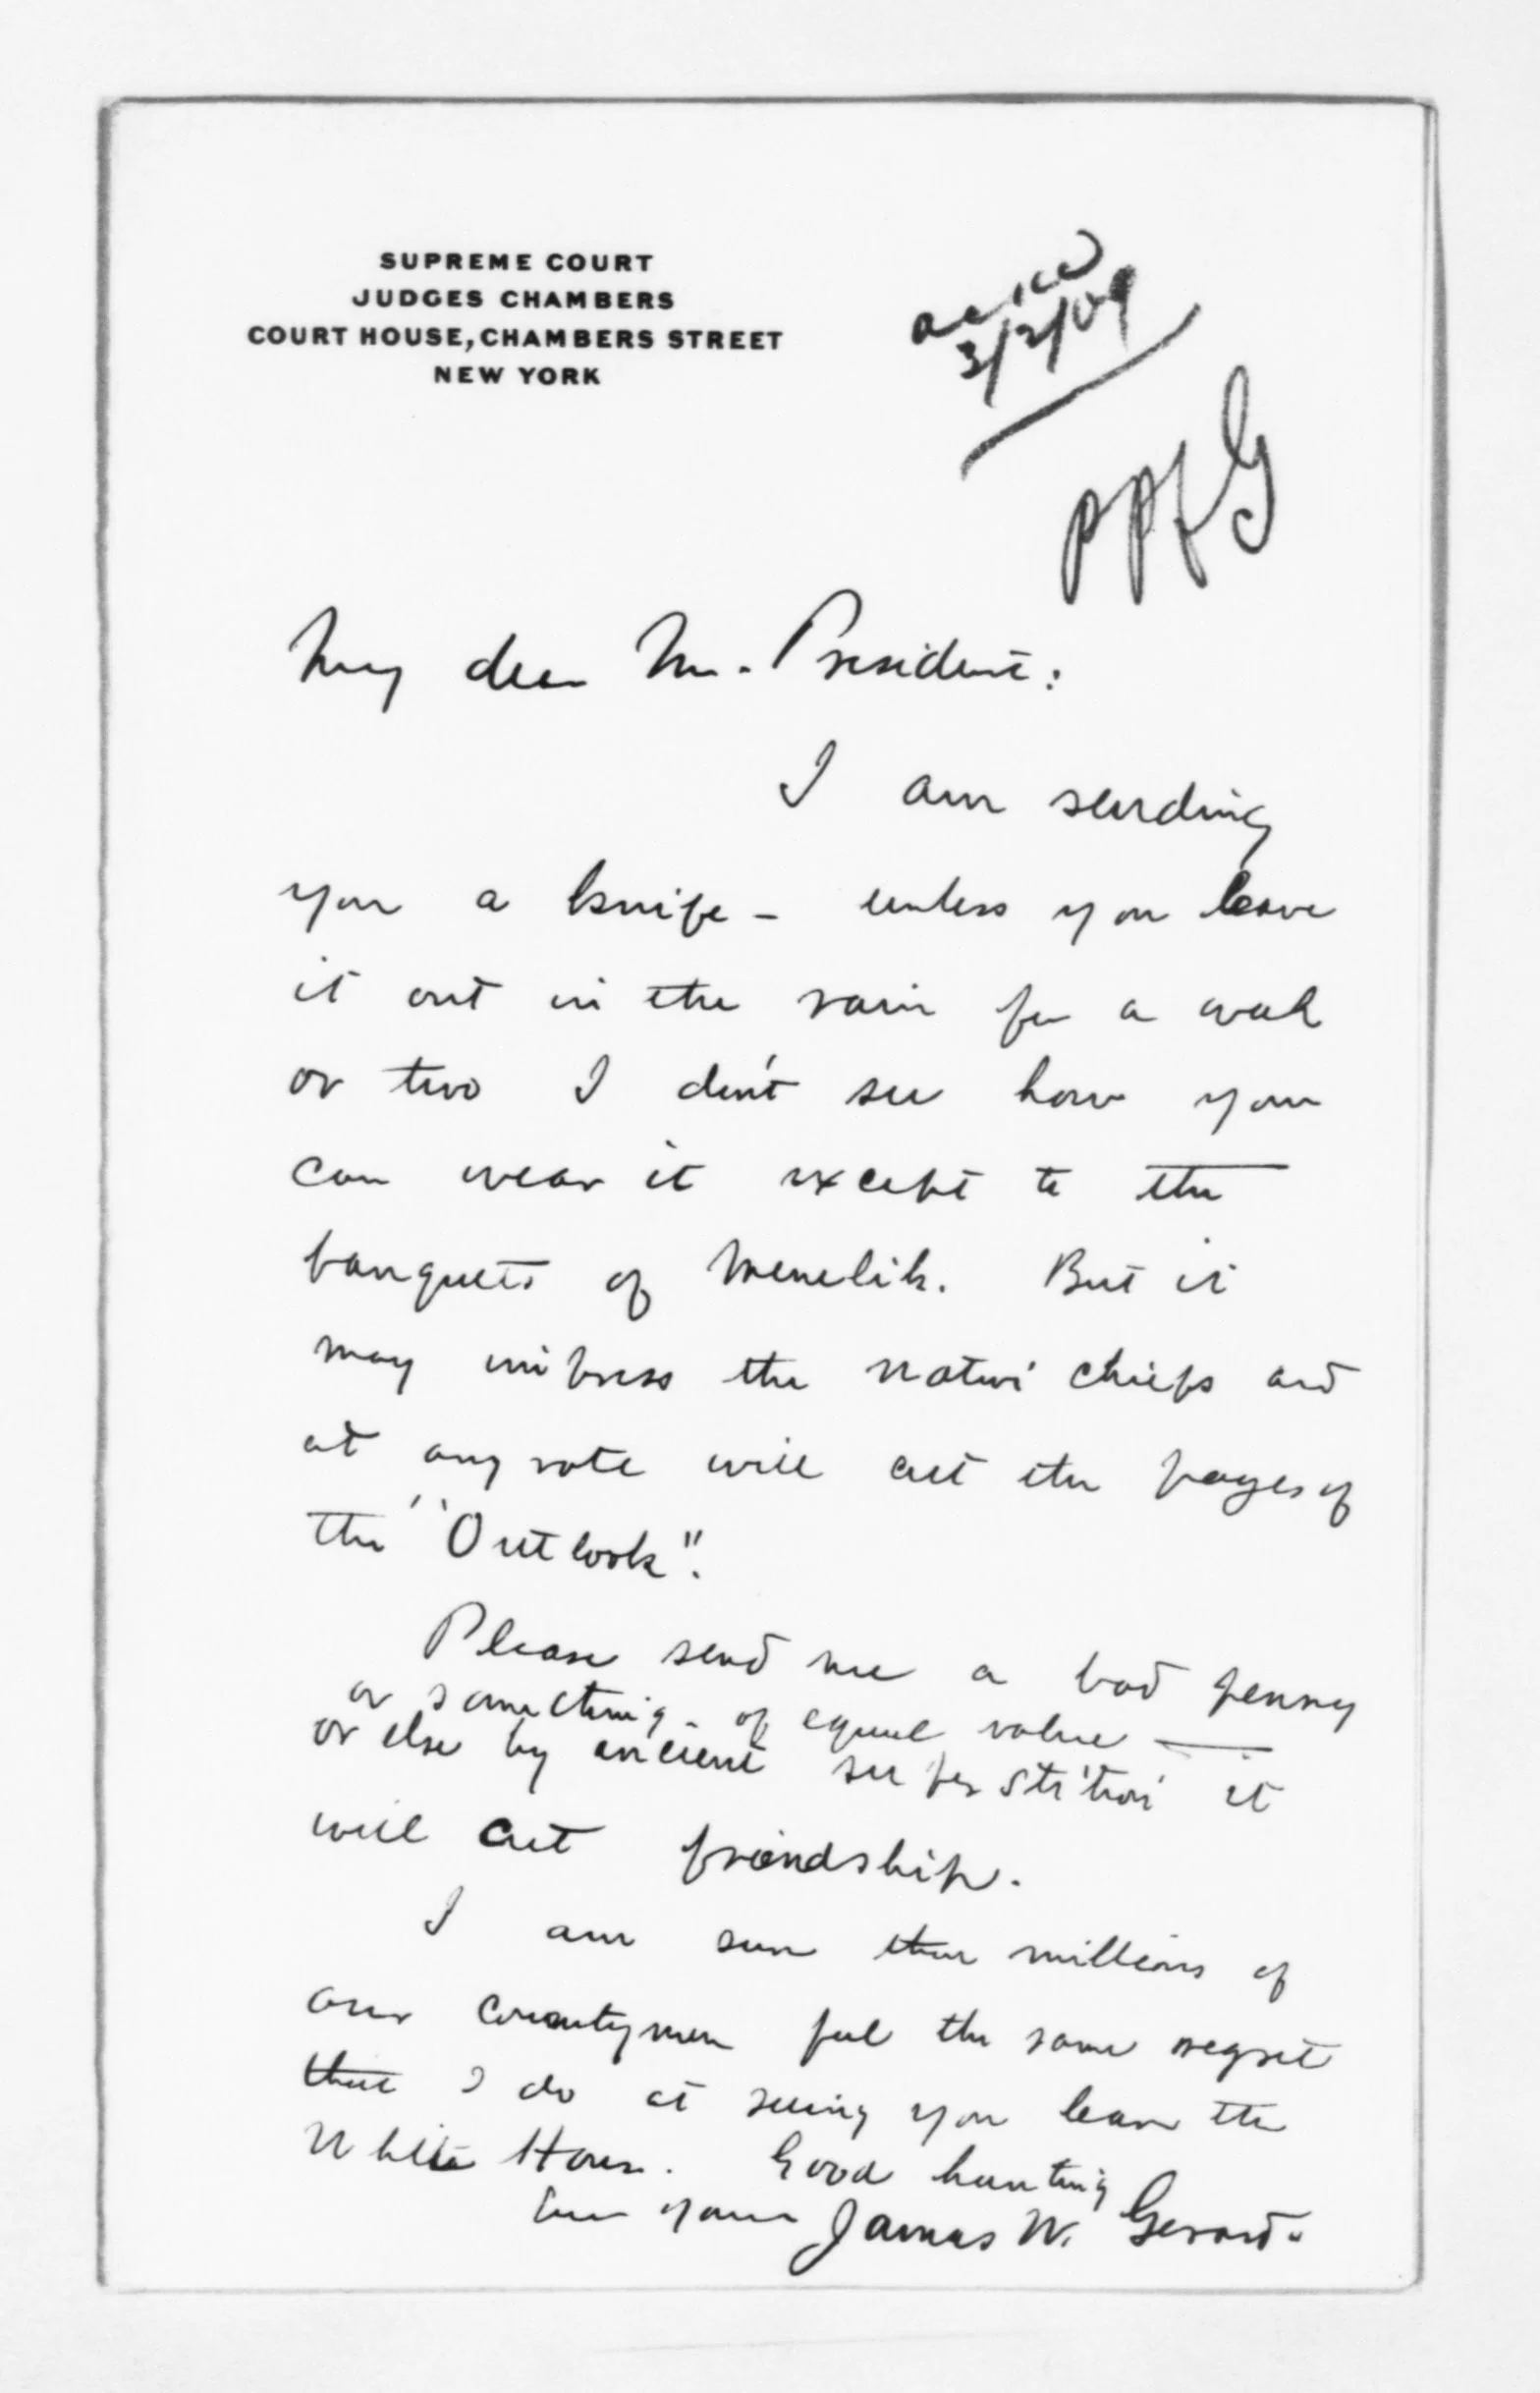 SUPREME COURT
JUDGES CHAMBERS
COURT HOUSE, CHAMBERS STREET
NEW YORK
3/2/09
PPF G
My dear Mr. President:
I am sending
you a knife - unless you leave
it out in the rain for a week
or two I don't see how you
can wear it except to the
banquets of Menelik. But it
may impress the native chiefs and
at any rate will cut the pages of
the "Outlook".
Please send me a bad penny
or something of equal value —
or else by ancient superstition it
will cut friendship.
I am sure that millions of
our countrymen feel the same regret
that I do at seeing you leave the
White House. Good hunting
Ever yours James W. Gerard.